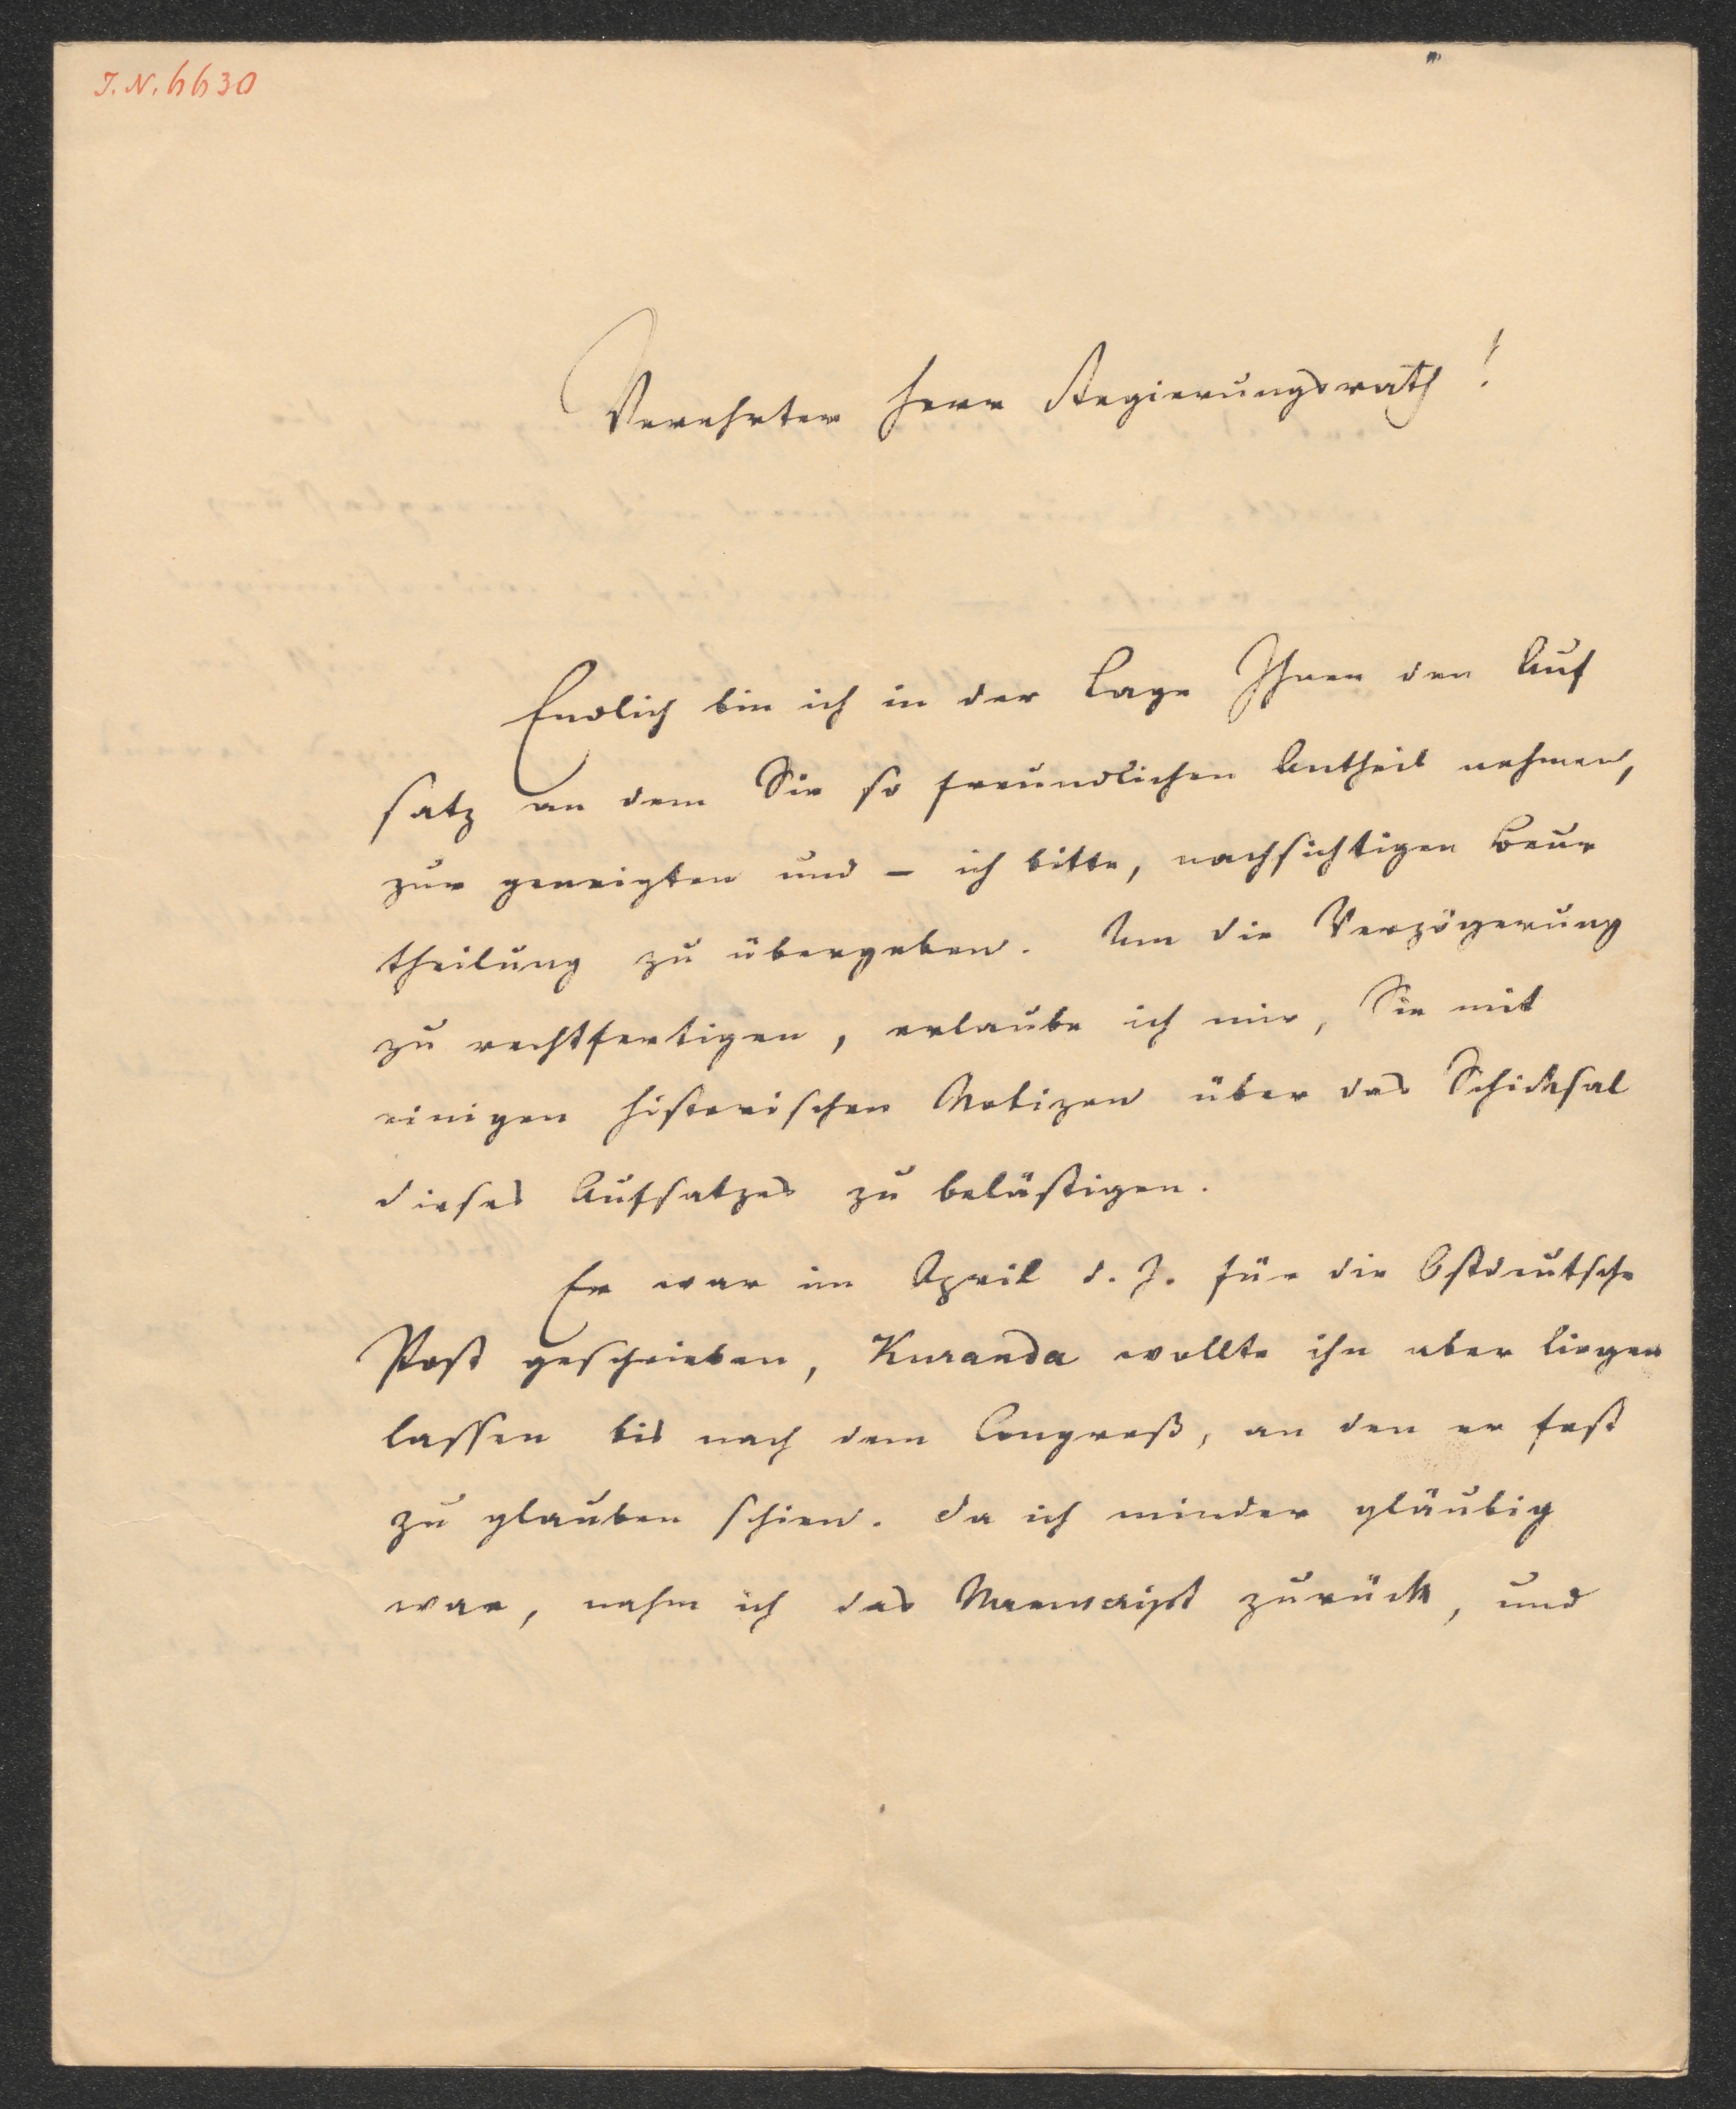 I.N. 6630
Verehrter Herr Regierungsrath!
Endlich bin ich in der Lage Ihnen den Auf
satz an dem Sie so freundlichen Antheil nehmen,
zur geneigten und – ich bitte, nachsichtigen Beur
theilung zu übergeben. Um die Verzögerung
zu rechtfertigen, erlaube ich mir, Sie mit
einigen historischen Notizen über das Schicksal
dieses Aufsatzes zu belästigen.
Er war im April d. J. für die Ostdeutsche
Post geschrieben, Kuranda wollte ihn aber liegen
lassen bis nach dem Congreß, an den er fest
zu glauben schien. Da ich minder gläubig
war, nahm ich das Manuscript zurück, und